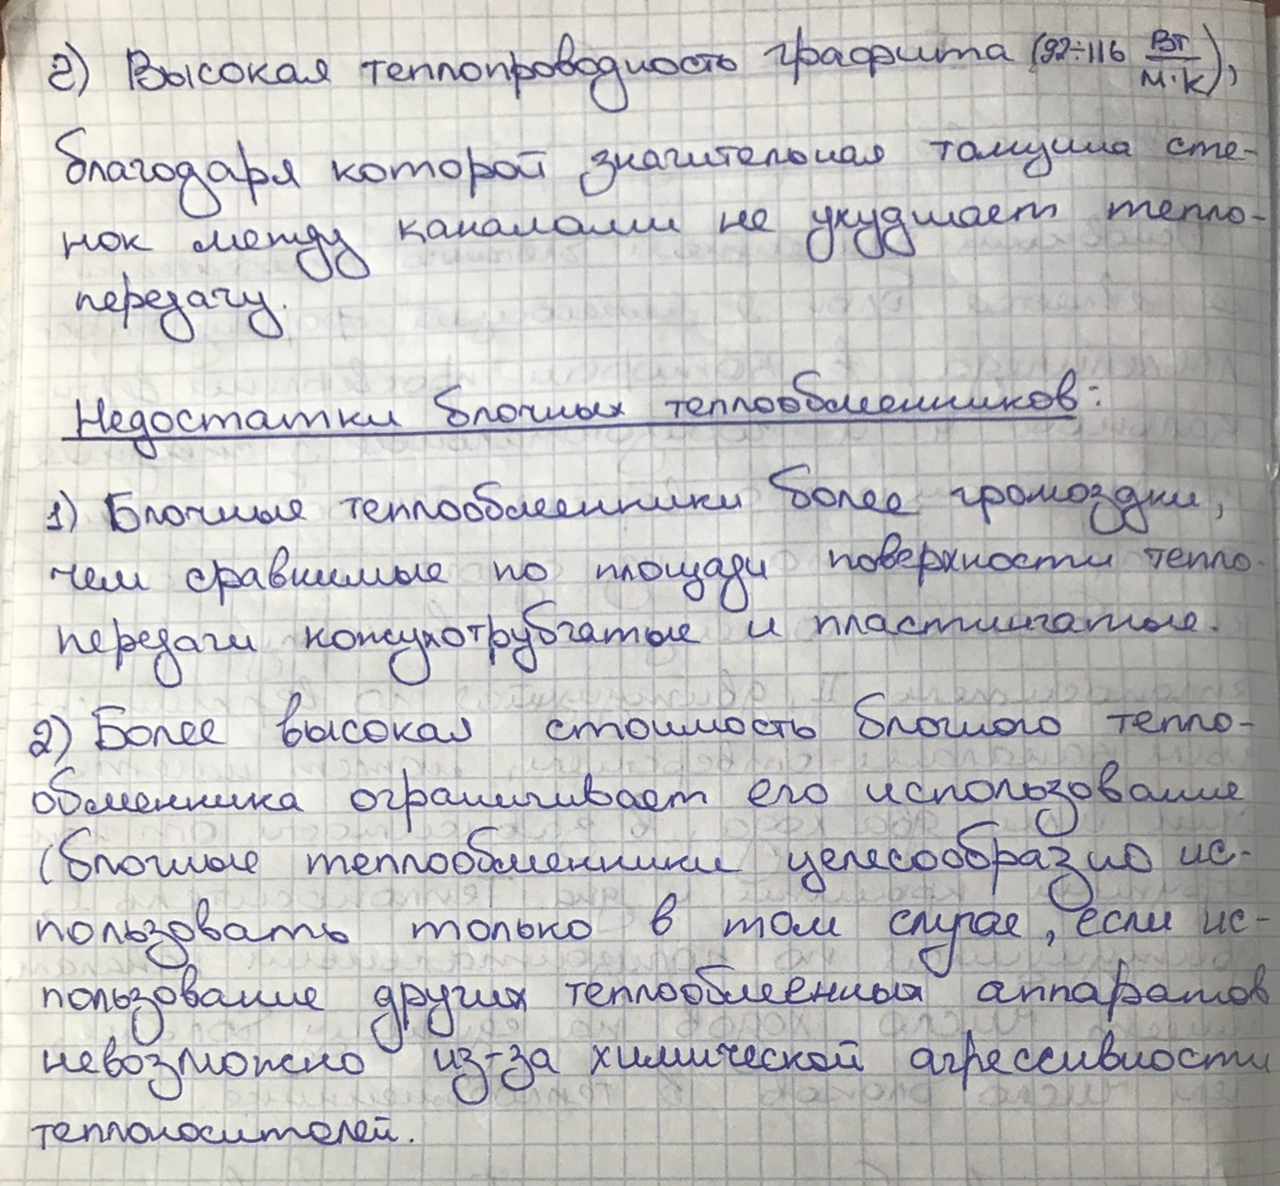 2) Высокая теплопроводность графита (92÷116 Вт/м·к),
благодаря которой значительная толщина сте-
нок между каналами не ухудшает тепло-
передачу.
Недостатки блочных теплообменников:
1) Блочные теплообменники более громоздки,
чем сравнимые по площади поверхности тепло-
передачи кожухотрубчатые и пластинчатые.
2) Более высокая стоимость блочного тепло-
обменника ограничивает его использование
(блочные теплообменники целесообразно ис-
пользовать только в том случае, если ис-
пользование других теплообменных аппаратов
невозможно из-за химической агрессивности
теплоносителей.